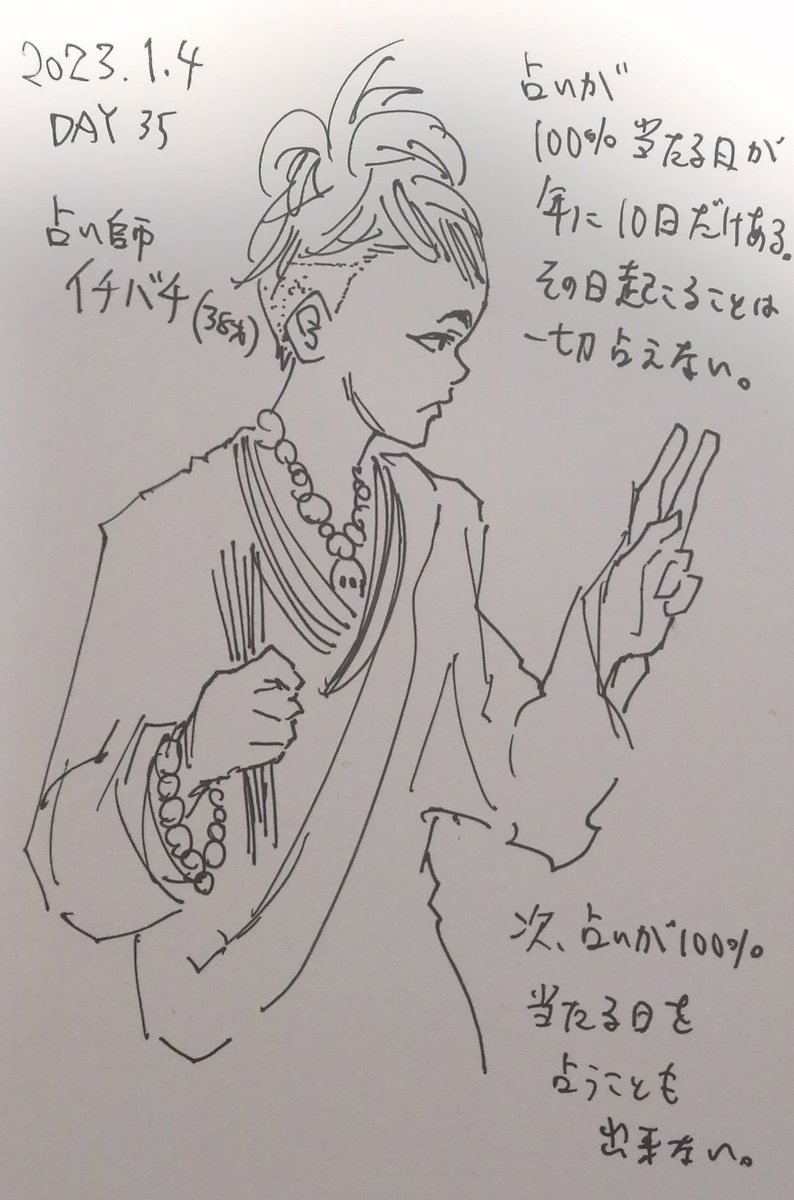 2023.1.4
DAY 35
占い師
イチバチ(38才)
占いが
100%当たる日が
年に10日だけある。
その日起こることは
一切占えない。
次、占いが100%
当たる日を
占うことも
出来ない。